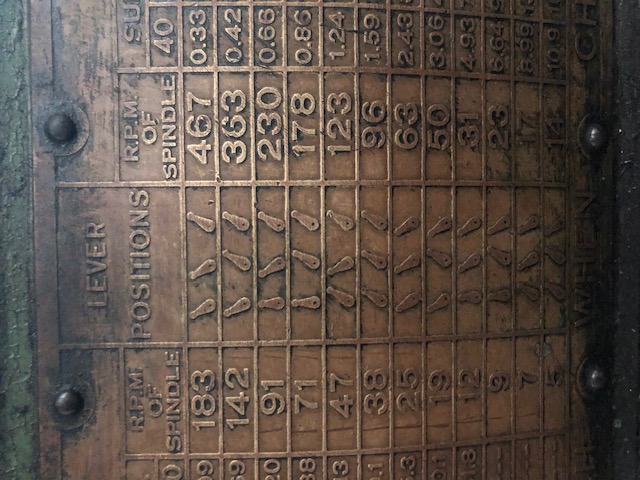 LEVER
R.P.M. R.P.M. SU
OF POSITIONS OF
SPINDLE SPINDLE 40
09 183 467 0.33
69 142 363 0.42
20 91 230 0.66
88 71 178 0.86
3 47 123 1.24
.1 38 96 1.59
.3 25 63 2.43
.1 19 50 3.06
1.8 12 31 4.93
9 23 6.64
7 17 8.99
5 14 10.9
WHEN CH